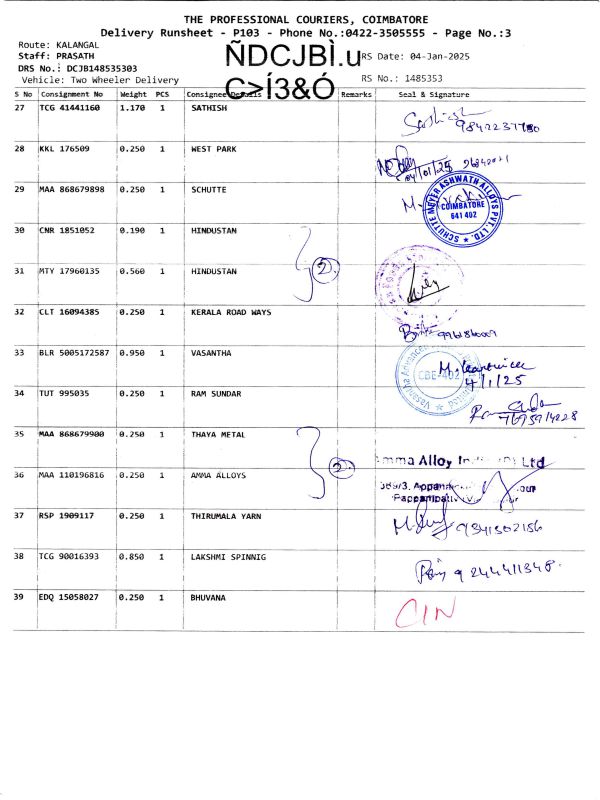 THE PROFESSIONAL COURIERS, COIMBATORE
Delivery Runsheet - P103 - Phone No.:0422-3505555 - Page No.:3
Route: KALANGAL
Staff: PRASATH
DRS No.: DCJB148535303
Vehicle: Two Wheeler Delivery
ÑDCJBÌ.u
C>Í3&Ó
RS Date: 04-Jan-2025
RS No.: 1485353
S No Consignment No Weight PCS Consignee Details Remarks Seal & Signature
27 TCG 41441160 1.170 1 SATHISH
28 KKL 176509 0.250 1 WEST PARK
04/01/25
29 MAA 868679898 0.250 1 SCHUTTE
SCHUTTE MEYER ASHWATH ALLOYS PVT. LTD.
COIMBATORE
641 402
30 CNR 1851052 0.190 1 HINDUSTAN
2
31 MTY 17960135 0.560 1 HINDUSTAN
32 CLT 16094385 0.250 1 KERALA ROAD WAYS
33 BLR 5005172587 0.950 1 VASANTHA
Vasantha Advanced
CBE-402
4/1/25
34 TUT 995035 0.250 1 RAM SUNDAR
35 MAA 868679900 0.250 1 THAYA METAL
2
Amma Alloy Ltd
36 MAA 110196816 0.250 1 AMMA ALLOYS
37 RSP 1909117 0.250 1 THIRUMALA YARN
9341502186
38 TCG 90016393 0.850 1 LAKSHMI SPINNIG
9244411348
39 EDQ 15058027 0.250 1 BHUVANA
CIN